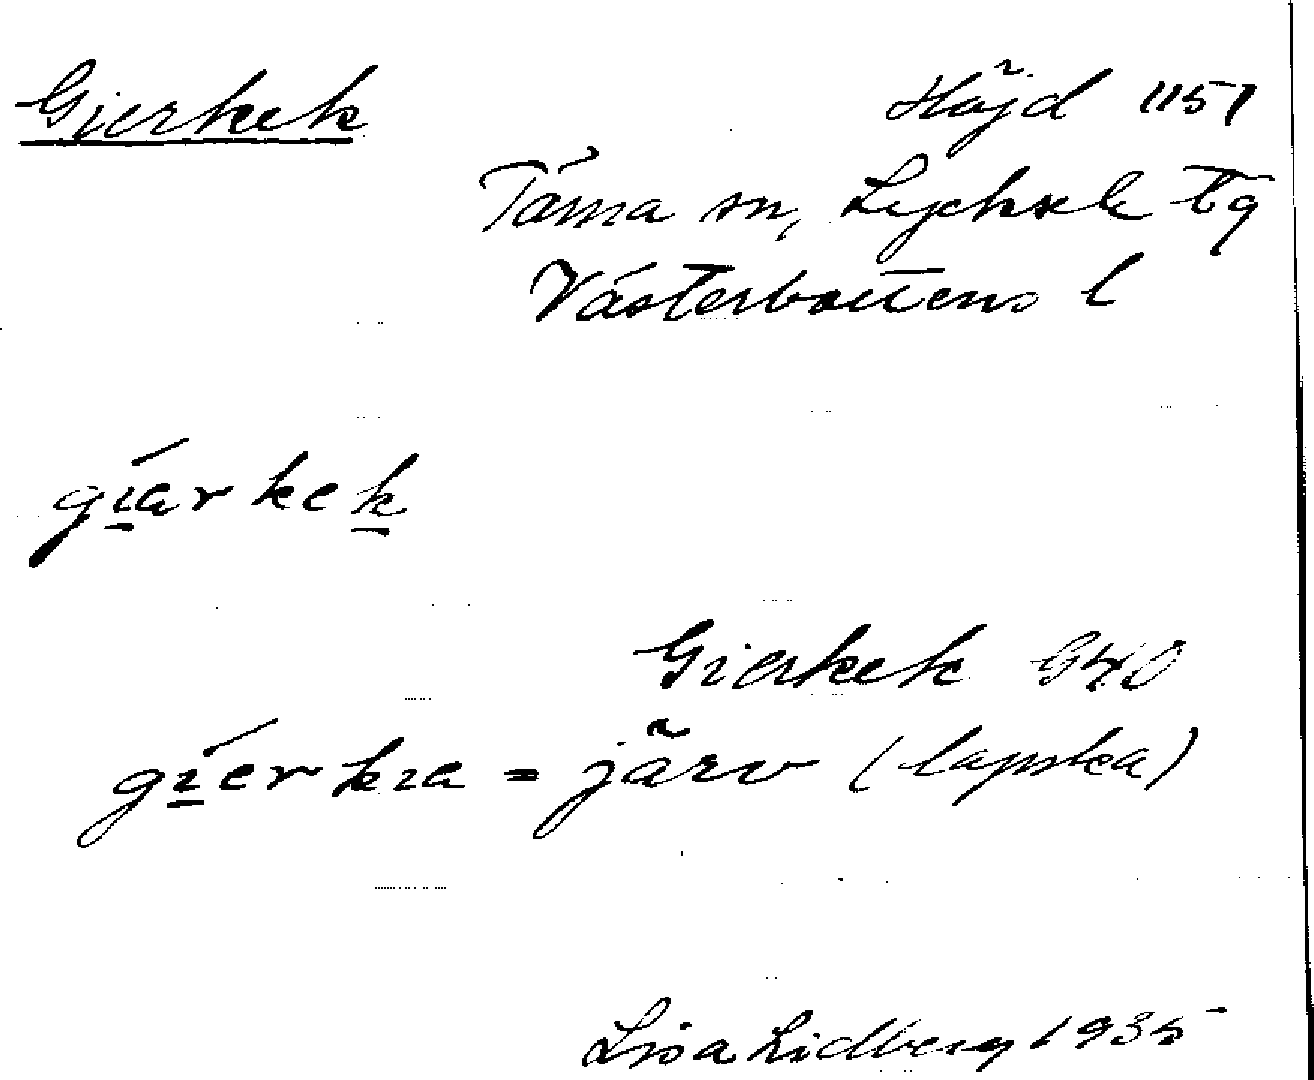 Gierkek
Höjd 1151
Tärna sn, Lycksele tg
Västerbottens l
gíarkek
Gierkek G40
gíerkıe = järv (lapska)
Lisa Lidberg 1935